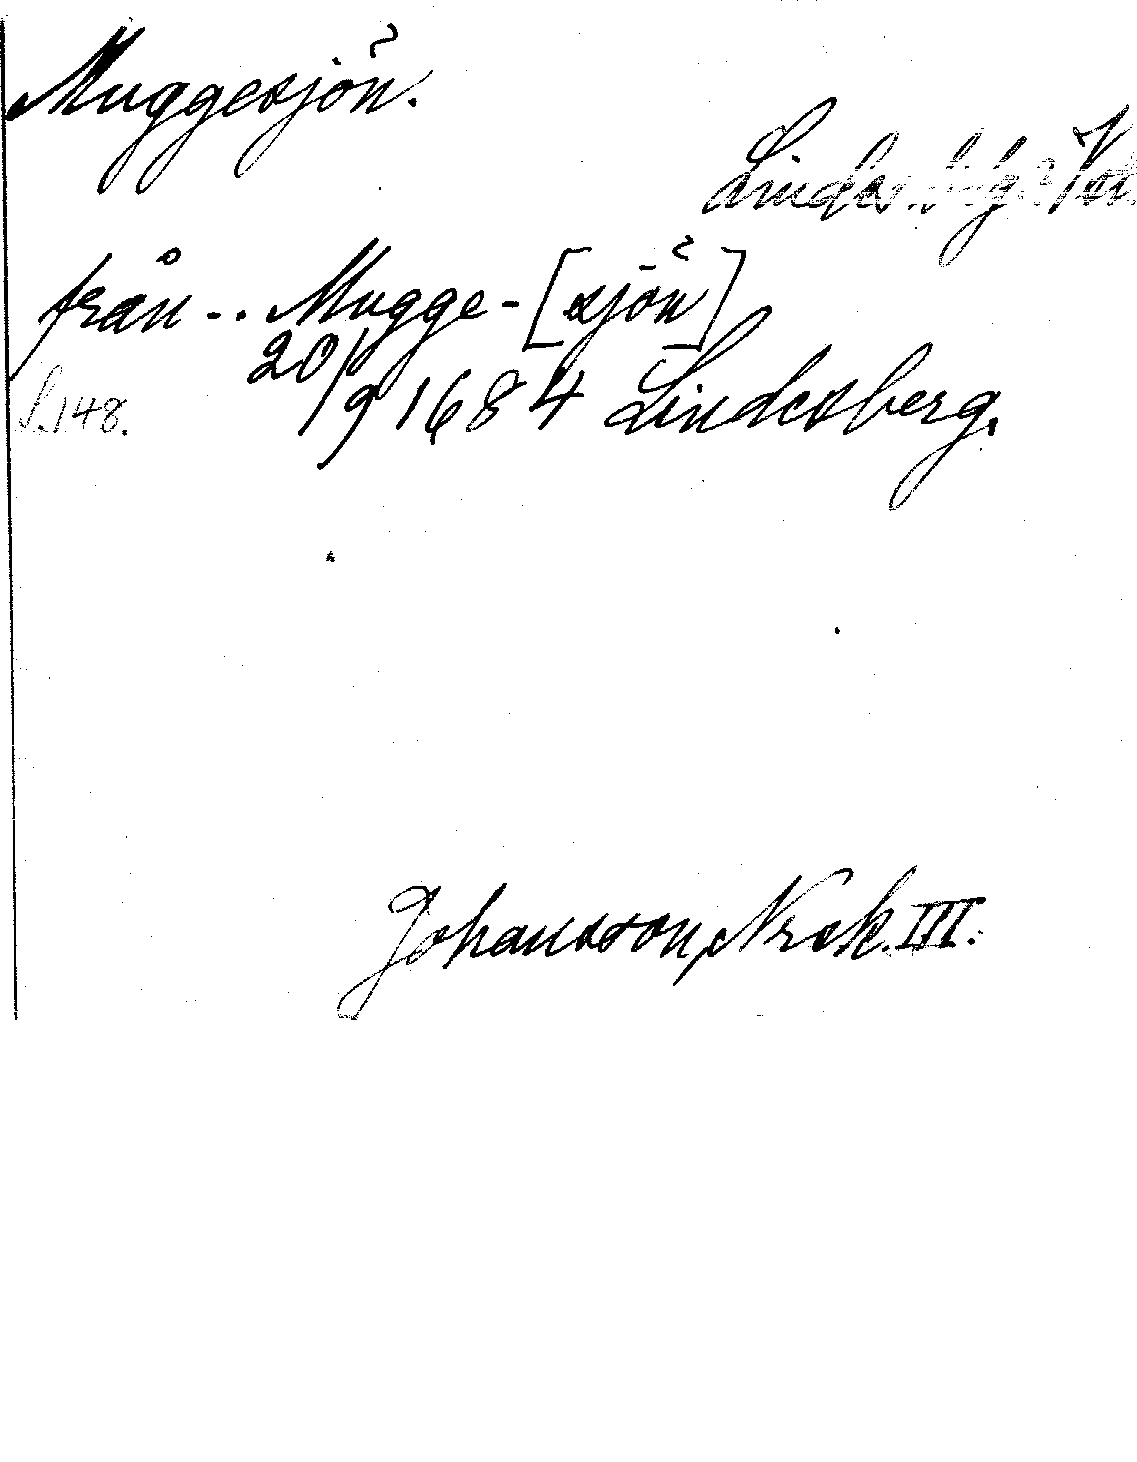 Muggesjön.
Lindes
från -.. Mugge-[sjön]
20/9 1684 Lindesberg.
S. 148.
Johansson, Norsk. III.